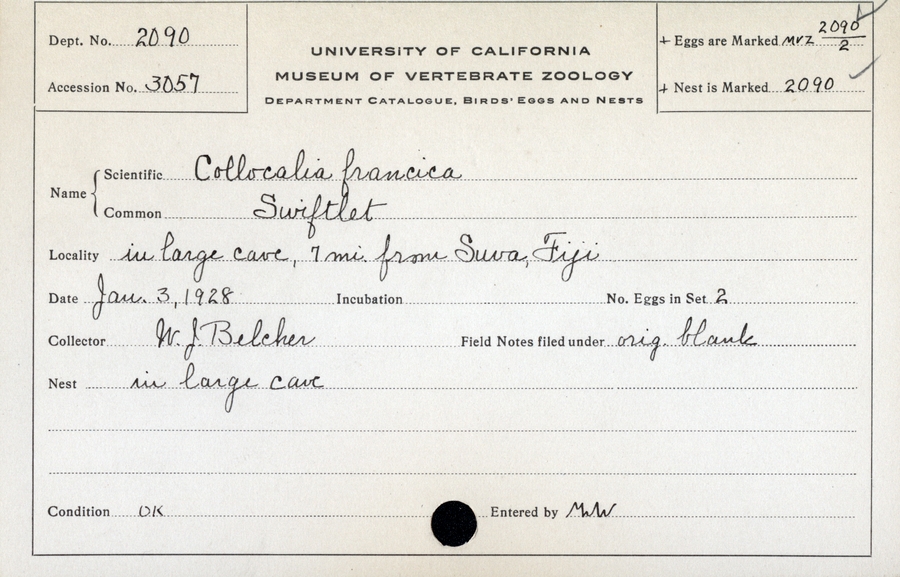 Dept. No. 2090
Accession No. 3057
UNIVERSITY OF CALIFORNIA
MUSEUM OF VERTEBRATE ZOOLOGY
DEPARTMENT CATALOGUE, BIRDS' EGGS AND NESTS
+ Eggs are Marked MVZ 2090/2
+ Nest is Marked 2090
Name
Scientific Collocalia francica
Common Swiftlet
Locality in large cave, 7 mi. from Suva, Fiji
Date Jan. 3, 1928 Incubation No. Eggs in Set 2
Collector W. J. Belcher Field Notes filed under orig. blank
Nest in large cave
Condition OK Entered by